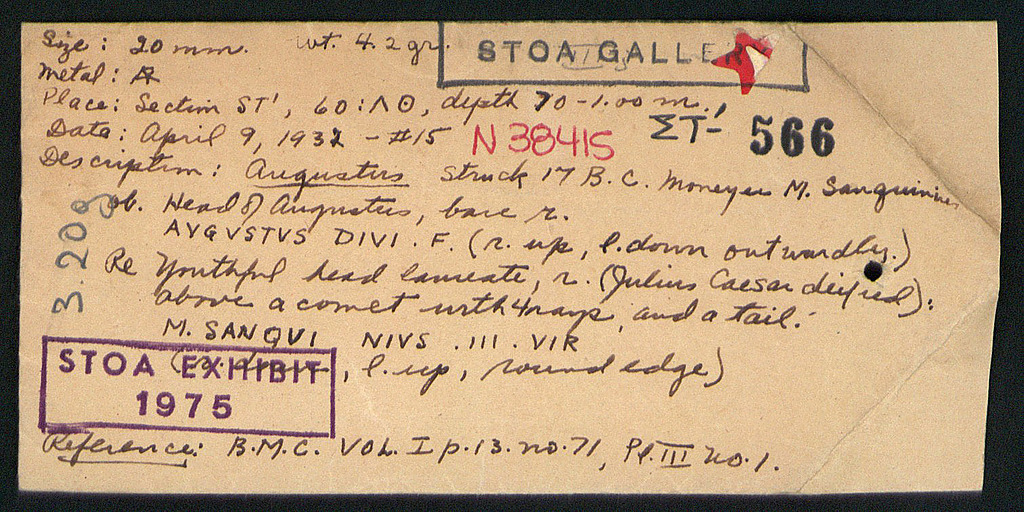 Size: 20 mm. wt. 4.2 gr.
STOA GALLERY
Metal: AR
Place: Section ΣT', 60:ΛΘ, depth 70-1.00 m.,
ΣT'- 566
Date: April 9, 1932 - #15
N 38415
Description: Augustus Struck 17 B.C. moneyer M. Sanquinius
3.209
Ob. Head of Augustus, bare r.
AVGVSTVS DIVI . F. (r. up, l. down outwardly.)
Re Youthful head laureate, r. (Julius Caesar deified):
above a comet with 4 rays, and a tail.
M. SANQVI NIVS . III . VIR
(r. down, l. up, round edge)
STOA EXHIBIT
1975
Reference: B.M.C. VOL. I p.13. no. 71, Pl. III no. 1.